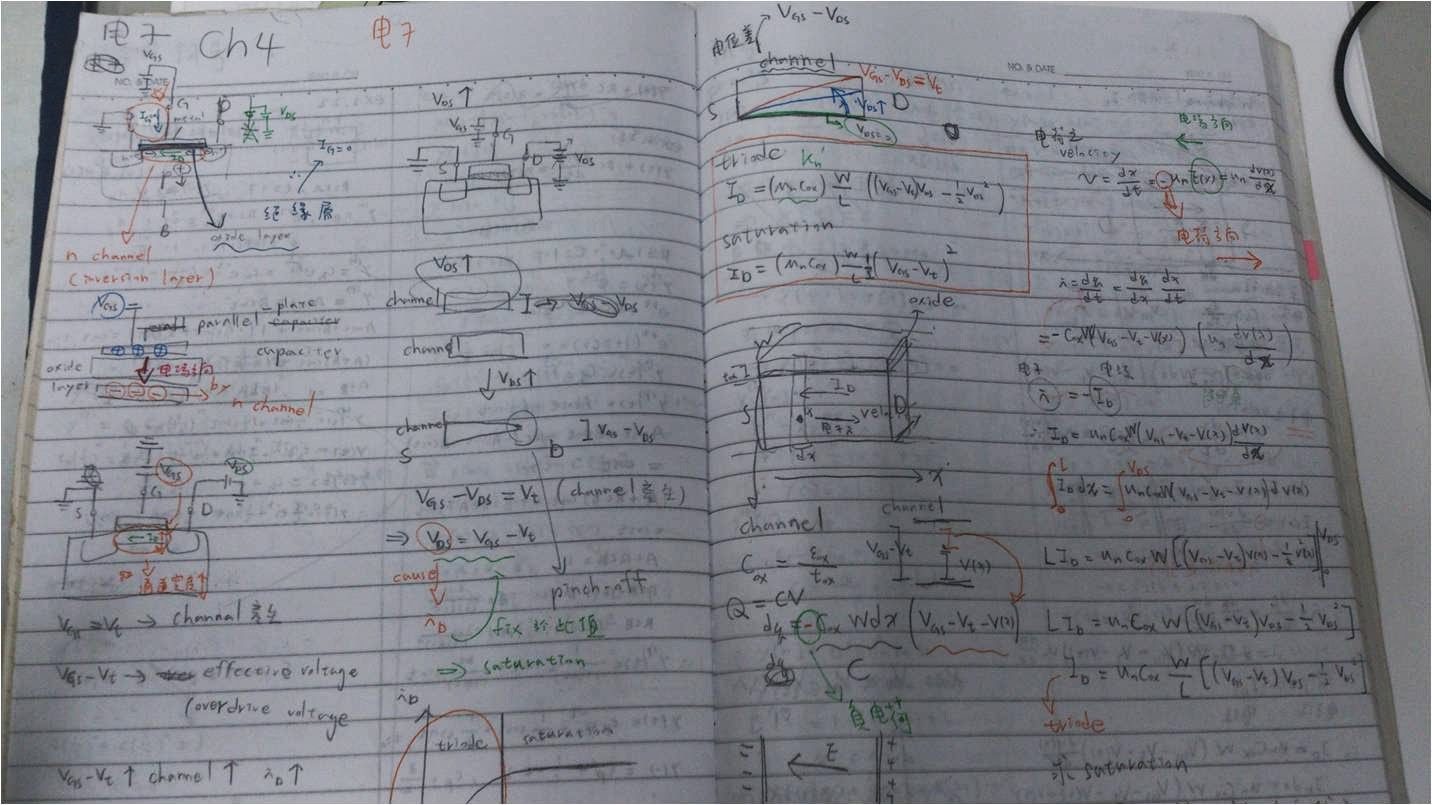 电子 Ch4 电子
NO. & DATE
VGS
G
D
VDS
metal
IG=0
P
B
绝缘层
oxide layer
n channel
(inversion layer)
VGS
parallel-plate
capacitor
oxide
layer
电场方向
n channel
VGS
VDS
S
G
D
VGS = Vt → channel 產生
VGS-Vt → effective voltage
(overdrive voltage
VGS-Vt ↑ channel ↑ iD ↑
VDS ↑
VGS
G
S
D
VDS
VDS ↑
channel
channel
↓ VDS ↑
channel
S
D
VGS-VDS
VGS-VDS = Vt (channel 產生)
⇒ VDS = VGS-Vt
cause
iD
pinch-off
fix 於此值
⇒ saturation
iD
triode
saturation
VGS-VDS
电位差
channel
S
D
VGS-VDS=Vt
VDS↑
NO. & DATE
triode kn'
ID = (un Cox) W/L ((VGS-Vt)VDS - 1/2 VDS²)
saturation
ID = (un Cox) W/L 1/2 (VGS-Vt)²
oxide
W
S
ID
D
dx
x
channel
Cox = εox/tox
channel
VGS-Vt
V(x)
Q = CV
dq = -Cox W dx (VGS-Vt-V(x))
C
负电荷
E
velocity
电场方向
v = dx/dt = -un E(x) = un dV(x)/dx
i = dq/dt = dq/dx dx/dt
= -Cox W (VGS-Vt-V(x)) (un dV(x)/dx)
电子
电流
i = -ID
∴ ID = un Cox W (VGS-Vt-V(x)) dV(x)/dx
∫0^L ID dx = ∫0^VDS un Cox W (VGS-Vt-V(x)) dV(x)
L ID = un Cox W [(VGS-Vt)V(x) - 1/2 V²(x)] |0^VDS
L ID = un Cox W [(VGS-Vt)VDS - 1/2 VDS²]
ID = un Cox W/L [(VGS-Vt)VDS - 1/2 VDS²]
triode
求 saturation